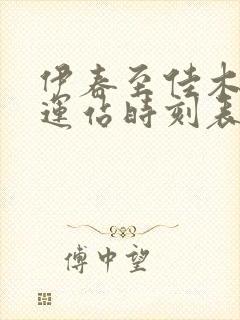 伊春至佳木
運佔時刻表
傅中望